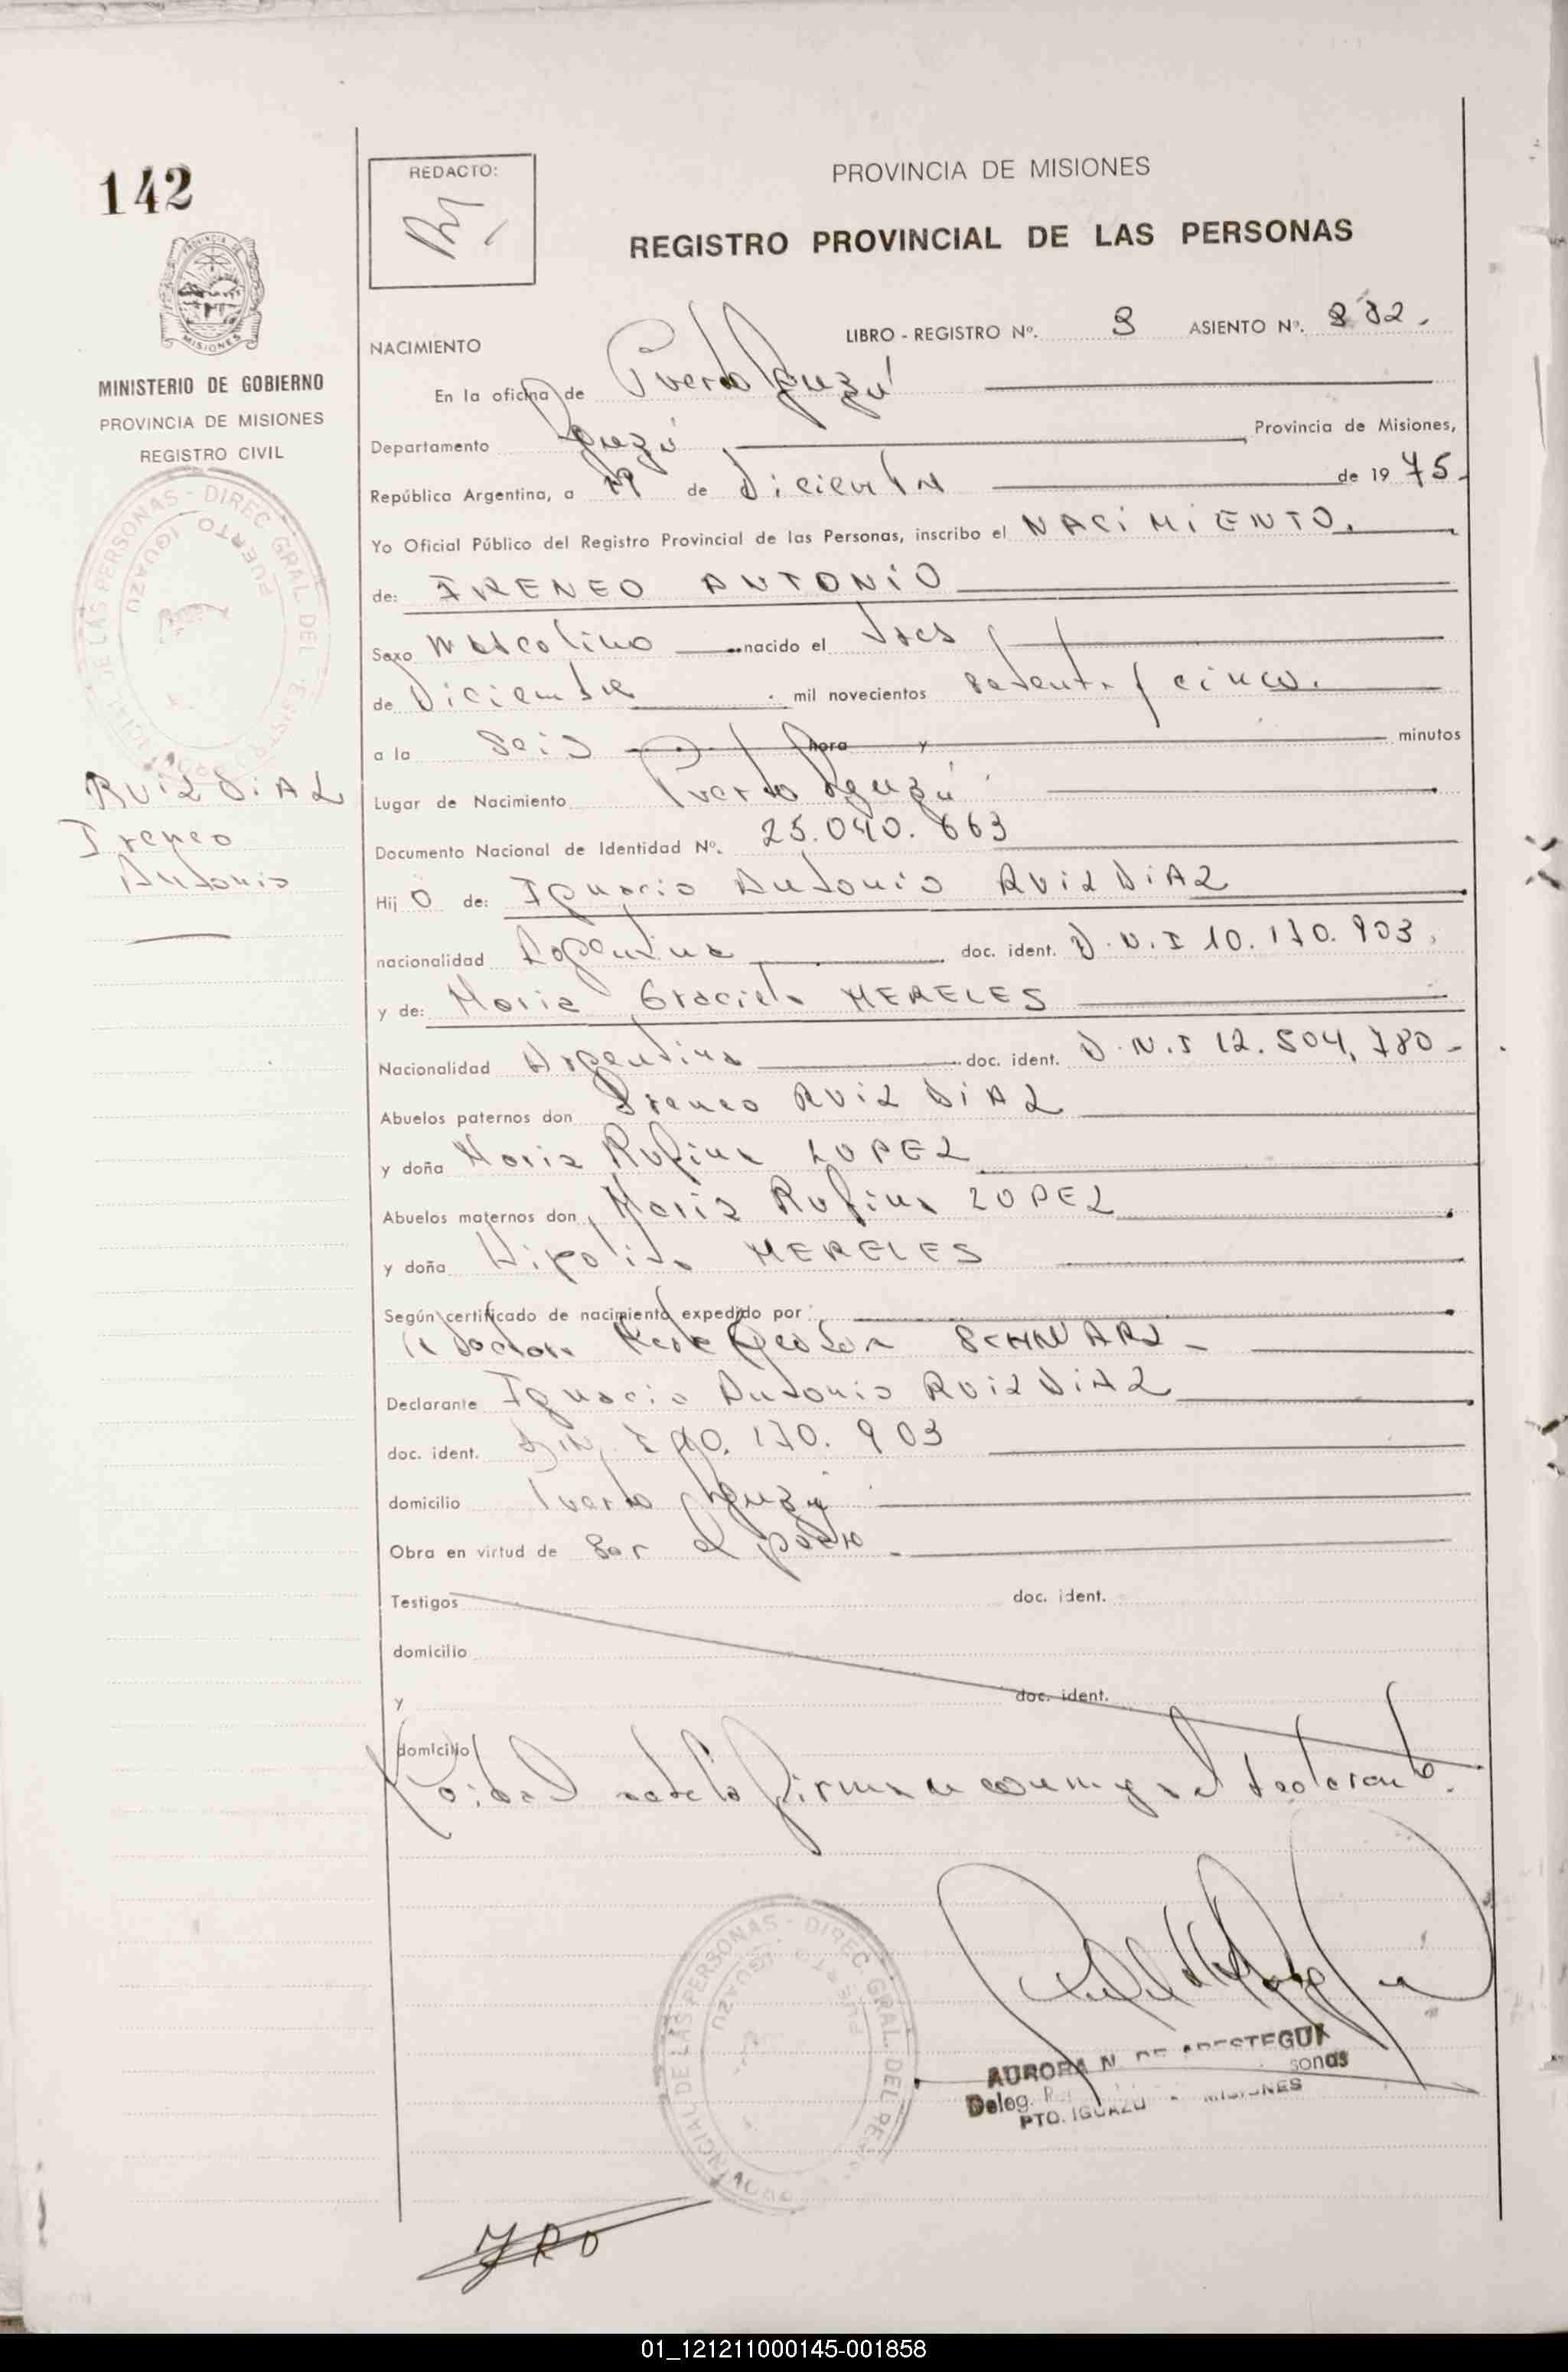 142
REDACTO:
PROVINCIA DE MISIONES
REGISTRO PROVINCIAL DE LAS PERSONAS
MISIONES
MINISTERIO DE GOBIERNO
PROVINCIA DE MISIONES
REGISTRO CIVIL
PUERTO IGUAZU
RUiZ DiAZ
Ireneo
Antonio
NACIMIENTO LIBRO - REGISTRO Nº. 3 ASIENTO Nº.
En la oficina de Puerto Iguazú
Departamento Iguazú Provincia de Misiones,
República Argentina, a 19 de Diciembre de 1975.
Yo Oficial Público del Registro Provincial de las Personas, inscribo el NACiMiENTO.
de: IRENEO ANTONiO
Sexo Masculino nacido el tres
de Diciembre mil novecientos setenta y cinco.
a la Seis hora y minutos
Lugar de Nacimiento Puerto Iguazú
Documento Nacional de Identidad Nº. 25.040.663
Hij o de: Ignacio Antonio RUiZ DiAZ
nacionalidad Argentina doc. ident. D.N.I 10.170.903,
y de: Maria Graciela MERELES
Nacionalidad Argentina doc. ident. D.N.I 12.504.780-
Abuelos paternos don Ireneo RUiZ DiAZ
y doña Maria Rufina LOPEZ
Abuelos maternos don Maria Rufina LOPEZ
y doña Hipolita MERELES
Según certificado de nacimiento expedido por:
la Doctora SCHWARZ -
Declarante Ignacio Antonio RUiZ DiAZ
doc. ident. D.N.I 10.170.903
domicilio Puerto Iguazú
Obra en virtud de Ser el padre -
Testigos doc. ident.
domicilio
y doc. ident.
domicilio
leida el acta la firman conmigo el declarante.
DIREC. GRAL. DEL
PROVINCIAL DE LAS PERSONAS
PUERTO IGUAZU
AURORA N. DE ARESTEGUI
Deleg.
PTO. IGUAZU MISIONES
IRO
01_121211000145-001858